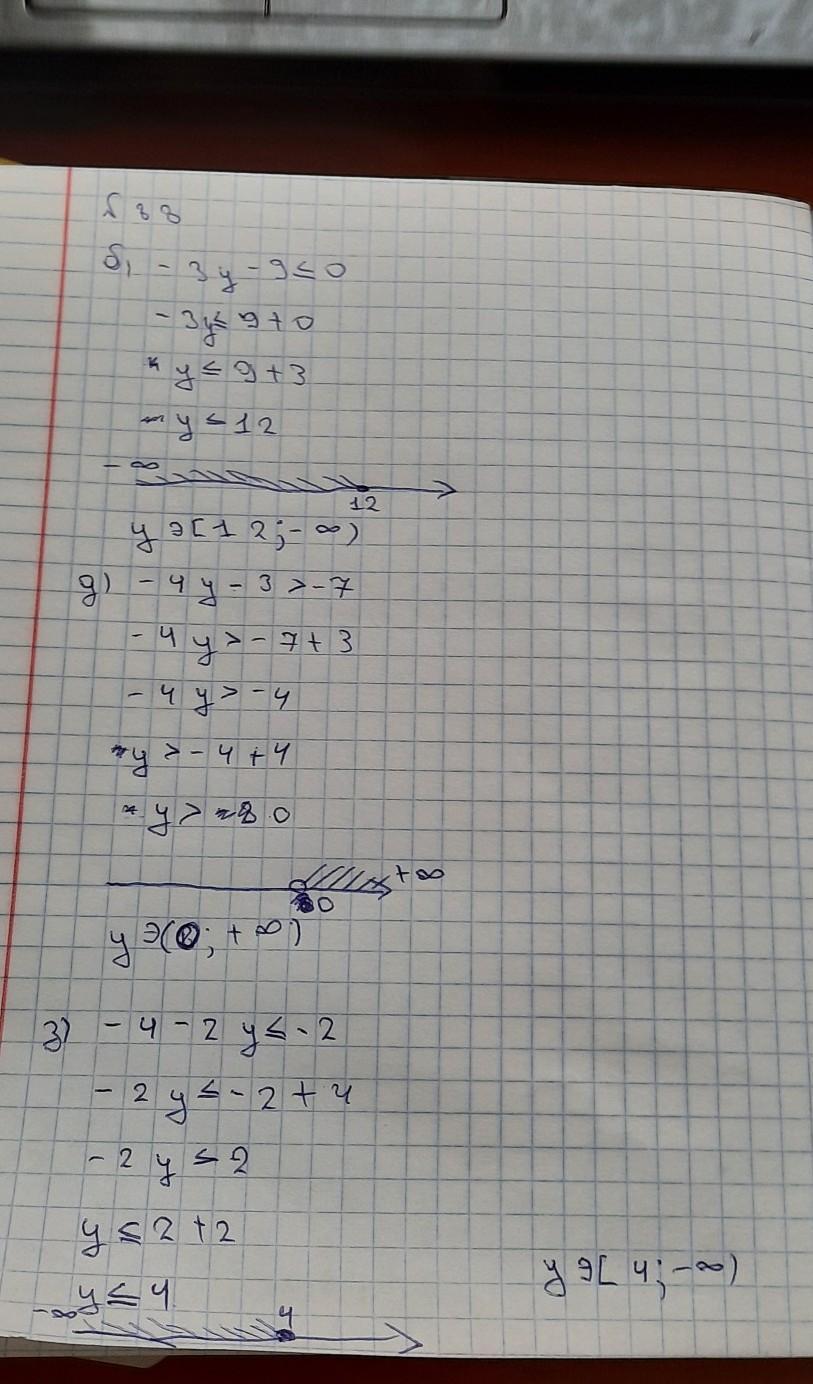 б) - 3y - 9 ≤ 0
- 3y ≤ 9 + 0
y ≤ 9 + 3
y ≤ 12
- ∞
12
y Э [12; - ∞)
д) - 4y - 3 > - 7
- 4y > - 7 + 3
- 4y > - 4
y > - 4 + 4
y > 0
+ ∞
0
y Э (0; + ∞)
з) - 4 - 2y ≤ - 2
- 2y ≤ - 2 + 4
- 2y ≤ 2
y ≤ 2 + 2
y ≤ 4
y Э [4; - ∞)
- ∞
4